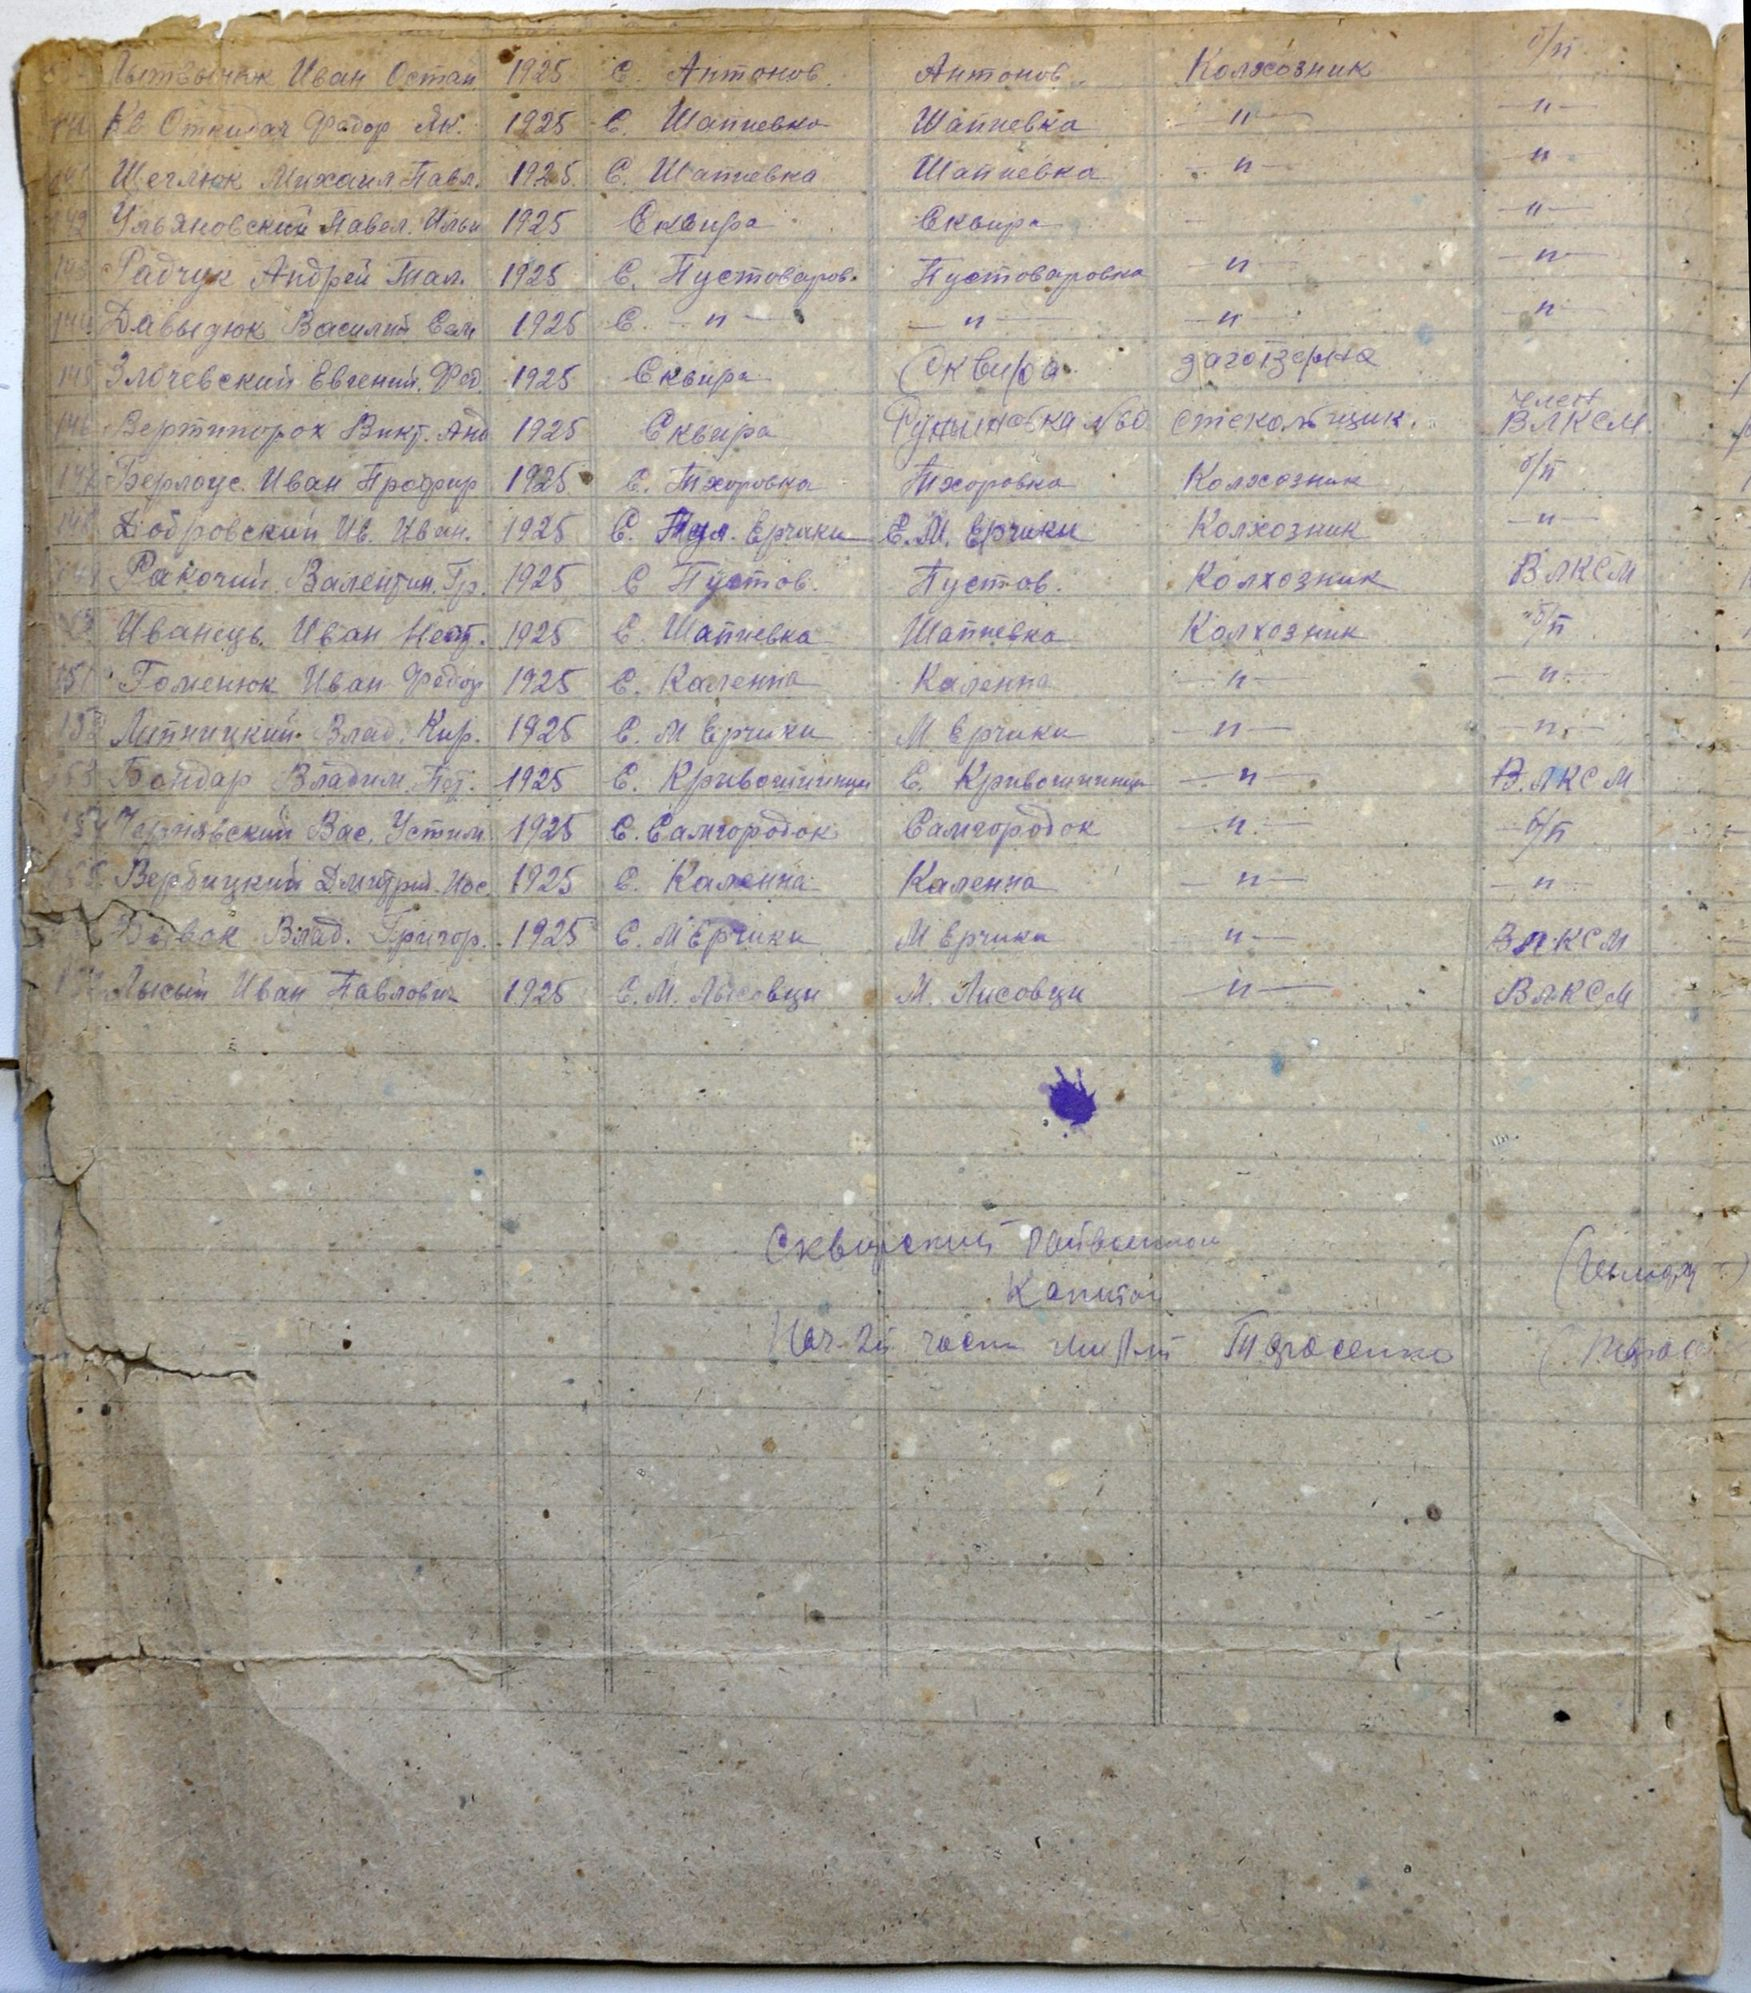 Лытвынюк Иван Остап 1925 С Антонов. Антонов. Колхозник б/п
Откидач Федор Як. 1925 С. Шапиевка Шапиевка —"— —"—
Щеглюк Михаил Павл. 1925 С. Шапиевка Шапиевка —"— —"—
142 Ульяновский Павел. Ильи 1925 Сквира Сквира - —"—
143 Радчук Андрей 1925 С. Пустоваров. Пустоваровка —"— —"—
144 Давыдюк Василий Сам 1925 С. —"— —"— —"— —"—
145 Злочевский Евгений. Фед. 1925 Сквира Сквира загозерна
146 Вертипорох Викт. Анд 1925 Сквира №60 стекольщик. член ВЛКСМ
147 Берлоус Иван Профир 1925 С. Тхоровка Тхоровка Колхозник б/п
148 Добровский Ив. Иван. 1925 С. Ерчики С. М. Ерчики Колхозник —"—
149 Ракочий Валентин. Гр. 1925 С Пустов. Пустов. Колхозник ВЛКСМ
Иванець Иван 1925 С. Шапиевка Шапиевка Колхозник б/п
151 Гоменюк Иван Федор 1925 С. Каленна Каленна —"— —"—
152 Липницкий Влад. Кир. 1925 С. М Ерчики М Ерчики —"— —"—
153 Бондар Владим. Пет. 1925 С. Кривошиинци С. Кривошиинци —"— ВЛКСМ
154 Чернявский Вас. Устим 1925 С. Самгородок Самгородок —"— б/п
155 Вербицкий Дмитрий. Иос. 1925 С. Каленна Каленна —"— —"—
Влад. Григор. 1925 С. М Ерчики М Ерчики —"— ВЛКСМ
Лысый Иван Павлович 1925 С. М. Лысовци М. Лисовци —"— ВЛКСМ
Сквирский Райвоенком
Капитан
Нач. 2й части Тарасенко